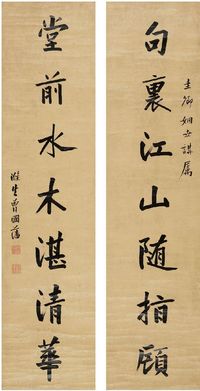 圭卿姻世講屬
句裏江山随指顧
堂前水木湛清華
滌生曾國藩